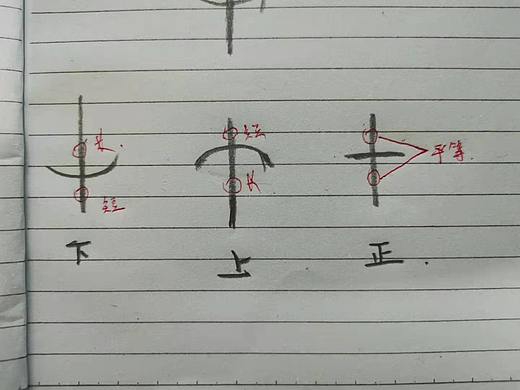 长 短
短 长
平等
下 上 正.